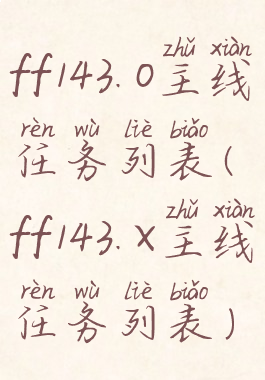 zhǔ xiàn
ff143.0主线
rèn wù liè biǎo
任务列表(
zhǔ xiàn
ff143.X主线
rèn wù liè biǎo
任务列表)